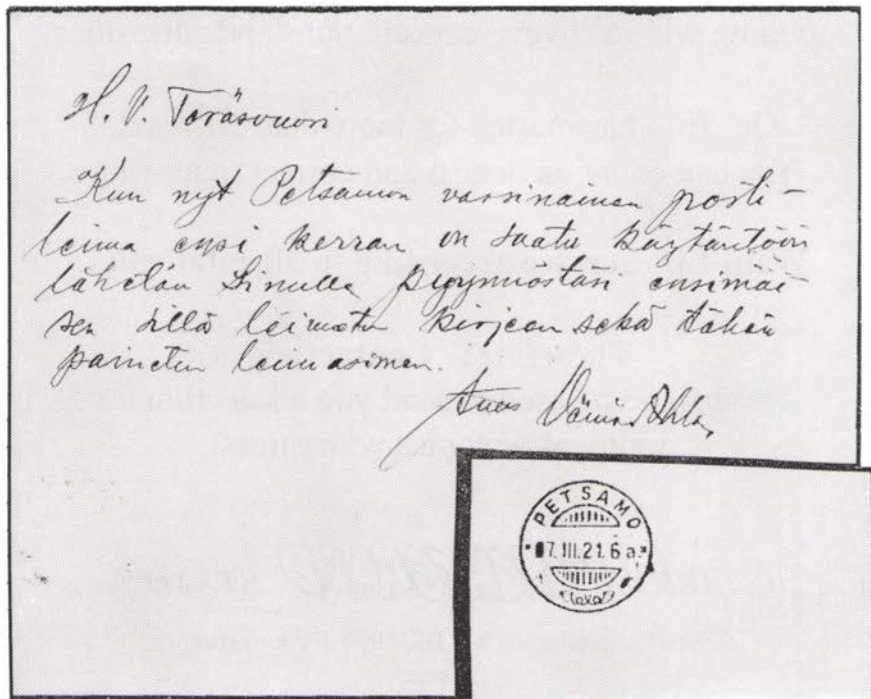 H. V. Teräsvuori
Kun nyt Petsamon varsinainen posti-
leima ensi kerran on saatu käytäntöön
lähetän Sinulle pyynnöstäsi ensimäi
sen sillä leimatun kirjeen sekä tähän
painetun leimasimen.
Väinö
PETSAMO
07.III.21.6 a.